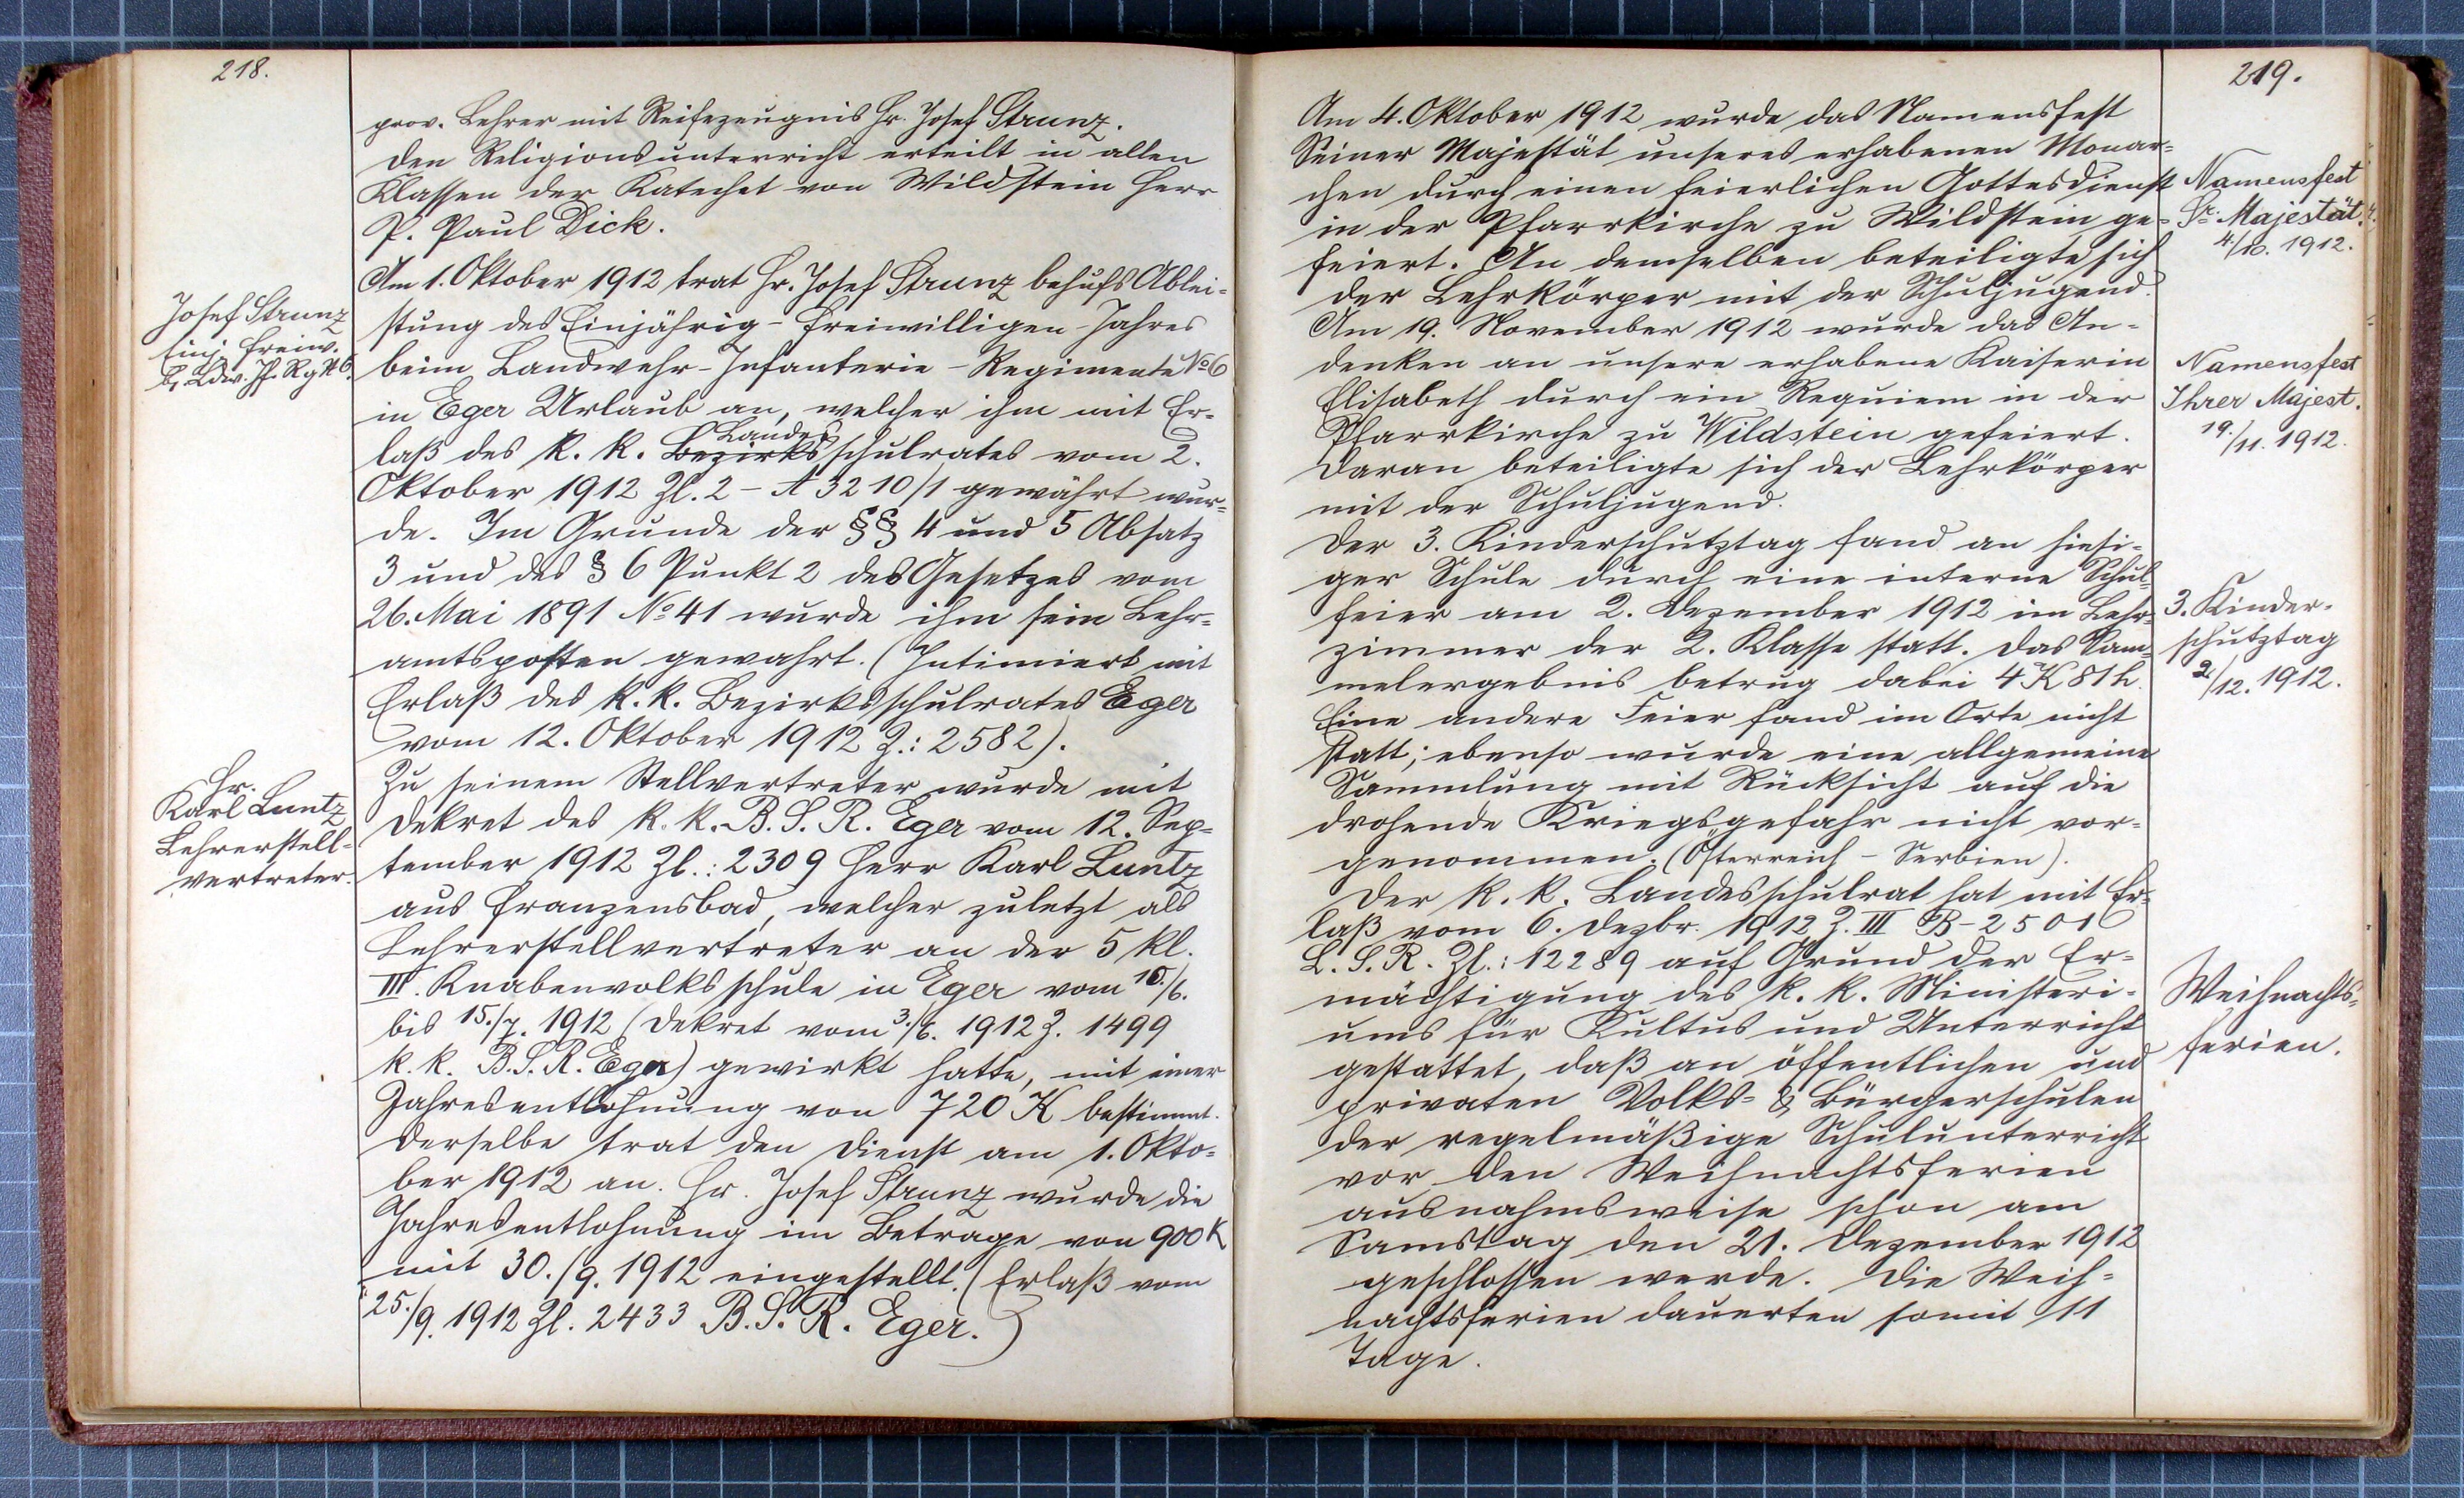 218.
prov. Lehrer mit Reifezeugnis Hr. Josef Strunz.
Den Religionsunterricht erteilt in allen
Klassen der Katechet von Wildstein Herr
P. Paul Dick.
Josef Strunz
Einj. Freiw.
b. Ldw. If. Rg. N 6.
Am 1. Oktober 1912 trat Hr. Josef Strunz behufs Ablei-
stung des Einjährig-Freiwilligen-Jahres
beim Landwehr-Infanterie-Regimente No 6
in Eger Urlaub an, welcher ihm mit Er-
Landes
laß des k. k. Bezirksschulrates vom 2.
Oktober 1912 Zl. 2 - A 3210/1 gewährt wur-
de. Im Grunde der §§ 4 und 5 Absatz
3 und des § 6 Punkt 2 des Gesetzes vom
26. Mai 1891 No 41 wurde ihm sein Lehr-
amtsposten gewahrt. (Intimiert mit
Erlaß des k. k. Bezirksschulrates Eger
vom 12. Oktober 1912 Z.: 2582).
Hr.
Karl Luntz
Lehrerstell-
vertreter.
Zu seinem Stellvertreter wurde mit
Dekret des k. k. B. S. R. Eger vom 12. Sep-
tember 1912 Zl.: 2309 Herr Karl Luntz
aus Franzensbad, welcher zuletzt als
Lehrerstellvertreter an der 5 kl.
III. Knabenvolksschule in Eger vom 10./6.
bis 15./7. 1912 (Dekret vom 3./6. 1912 Z. 1499
k. k. B. S. R. Eger) gewirkt hatte, mit einer
Jahresentlohnung von 720 K bestimmt.
Derselbe trat den Dienst am 1. Okto-
ber 1912 an. Hr. Josef Strunz wurde die
Jahresentlohnung im Betrage von 900 K
mit 30./9. 1912 eingestellt. (Erlaß vom
25./9. 1912 Zl. 2433 B. S. R. Eger.)
219.
Am 4. Oktober 1912 wurde das Namensfest
Seiner Majestät unseres erhabenen Monar-
chen durch einen feierlichen Gottesdienst
in der Pfarrkirche zu Wildstein ge-
feiert. An demselben beteiligte sich
der Lehrkörper mit der Schuljugend.
Namensfest
Sr. Majestät.
4./10. 1912.
Am 19. November 1912 wurde das An-
denken an unsere erhabene Kaiserin
Elisabeth durch ein Requiem in der
Pfarrkirche zu Wildstein gefeiert.
Daran beteiligte sich der Lehrkörper
mit der Schuljugend.
Namensfest
Ihrer Majest.
19./11. 1912.
Der 3. Kinderschutztag fand an hiesi-
ger Schule durch eine interne Schul-
feier am 2. Dezember 1912 im Lehr-
zimmer der 2. Klasse statt. Das Sam-
melergebnis betrug dabei 4 K 81 h.
Eine andere Feier fand im Orte nicht
statt; ebenso wurde eine allgemeine
Sammlung mit Rücksicht auf die
drohende Kriegsgefahr nicht vor-
genommen. (Österreich - Serbien).
3. Kinder-
schutztag
2./12. 1912.
Der k. k. Landesschulrat hat mit Er-
laß vom 6. Dezbr. 1912 Z. III B - 2501
L. S. R. Zl.: 12289 auf Grund der Er-
mächtigung des k. k. Ministeri-
ums für Kultus und Unterricht
gestattet, daß an öffentlichen und
privaten Volks- & Bürgerschulen
der regelmäßige Schulunterricht
vor den Weihnachtsferien
ausnahmsweise schon am
Samstag den 21. Dezember 1912
geschlossen werde. Die Weih-
nachtsferien dauerten somit 11
Tage.
Weihnachts-
ferien.